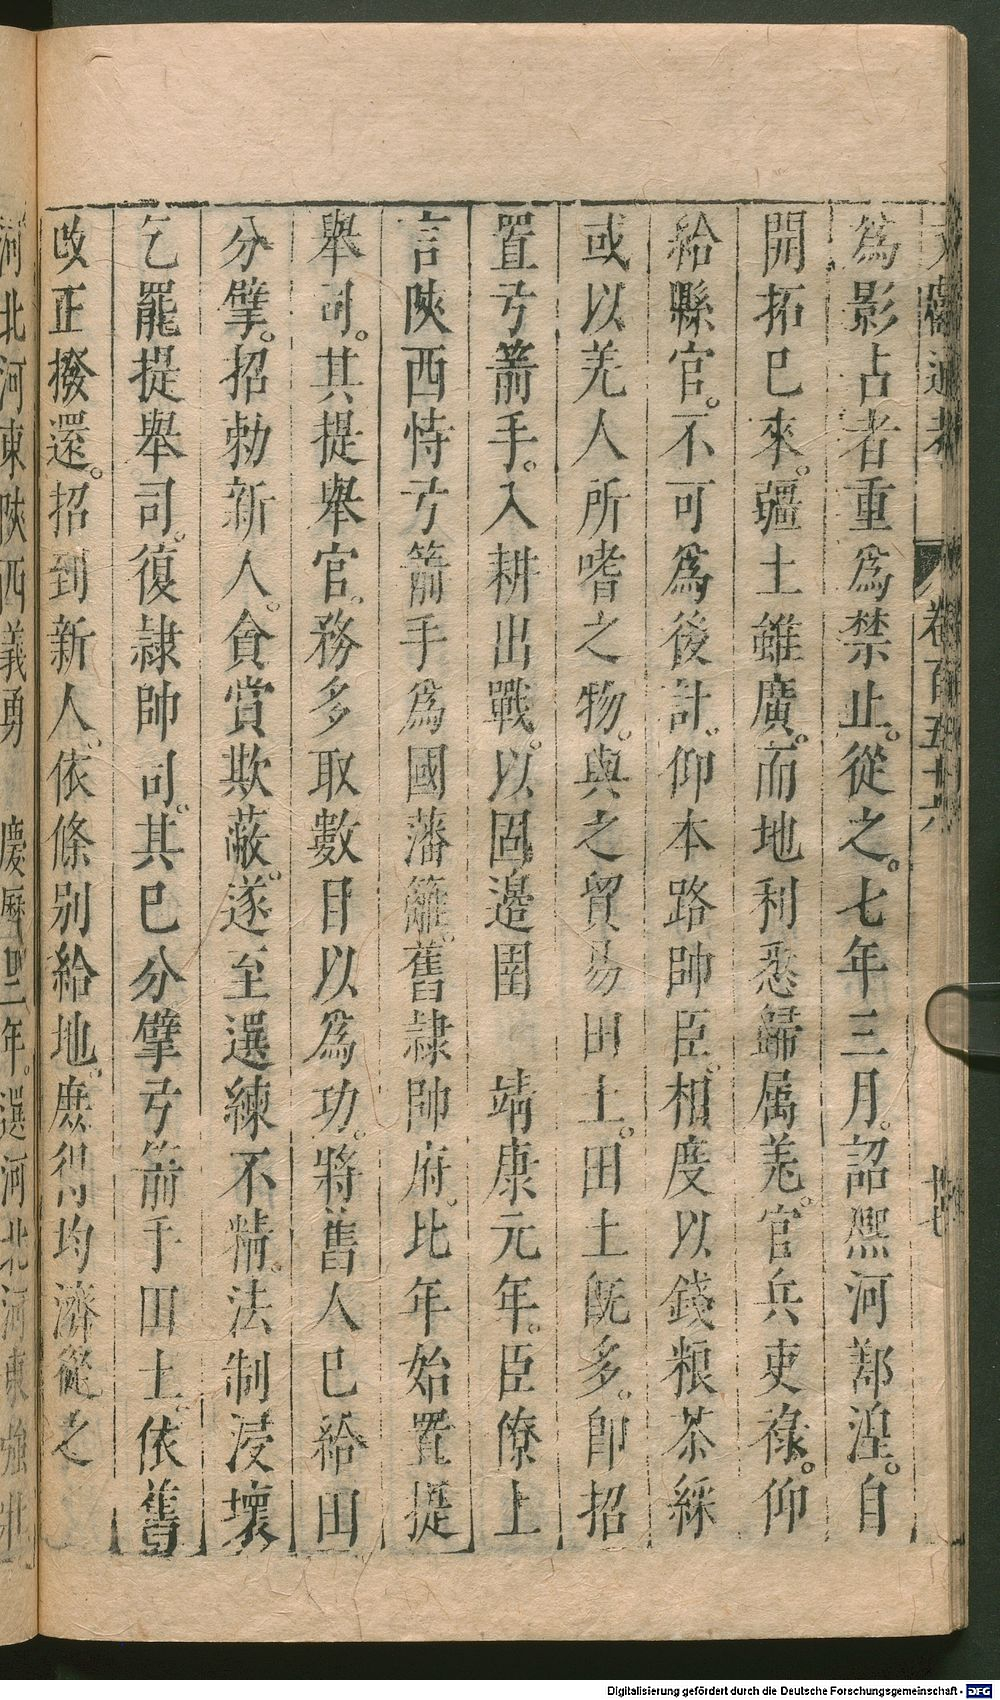 文獻通考 卷百五十六 十七
爲影占者重爲禁止。從之。七年三月。詔熙河鄯湟。自
開拓已來。疆土雖廣。而地利悉歸属羌。官兵吏祿。仰
給縣官。不可爲後計。仰本路帥臣。相度以錢粮茶綵
或以羌人所嗜之物。與之貿易田土。田土旣多。卽招
置弓箭手。入耕出戰。以固邉圉　靖康元年。臣僚上
言陝西恃弓箭手爲國藩籬。舊隷帥府。比年始置提
舉司。其提舉官。務多取數目以爲功。將舊人已給田
分擘。招勑新人。貪賞欺蔽。遂至選練不精。法制浸壞
乞罷提舉司。復隷帥司。其已分擘弓箭手田土。依舊
改正撥還。招到新人。依條别給地。庶得均濟從之
河北河東陝西義勇　慶曆二年。選河北河東強壯
Digitalisierung gefördert durch die Deutsche Forschungsgemeinschaft - DFG